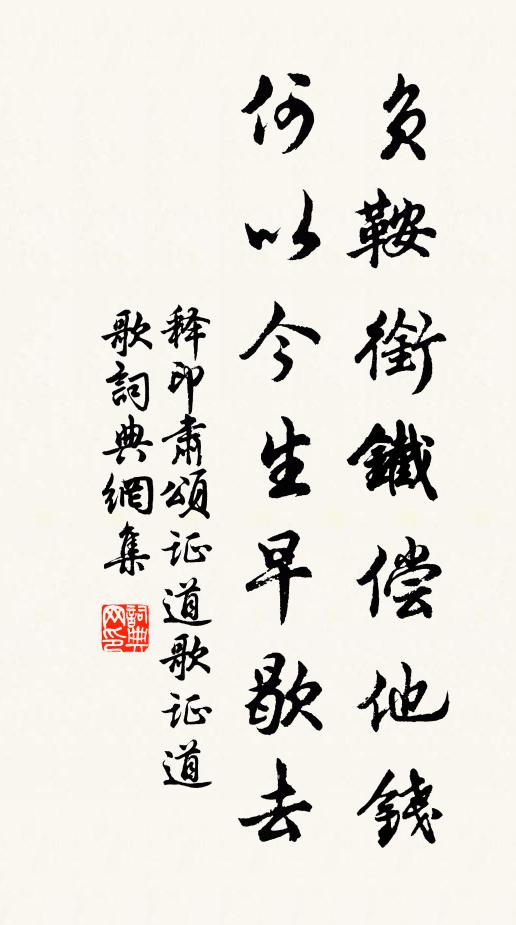 负鞍銜鐵偿他錢
何以今生早歇去
释印肃頌证道歌证道
歌詞典網集
詞典网印